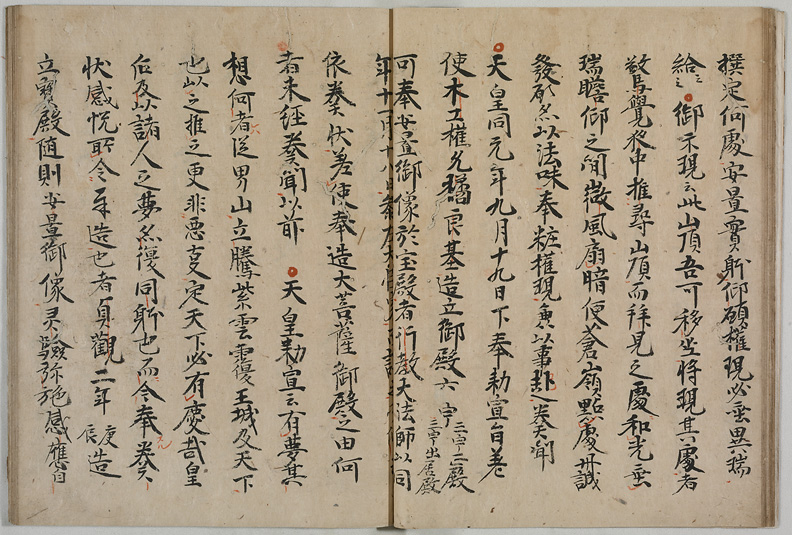 撰定何處安置寳躰仰願權現必垂異瑞
給之 御示現云此山頂吾可移坐將現其處者
驚覺夜中推尋山頂而拜見之處和光垂
瑞瞻仰之間微風扇暗便蒼嶺點處丹誠
發願以法味奉粧權現兼以事趣奏聞
天皇同元年九月十九日下奉勅宣旨差
使木工權允橘良基造立御殿六宇三宇二殿三宇出居殿
可奉安置御像於宝殿者行教大法師以同
年十一月十八日
依奏状差使奉造大菩薩御殿之由何
者未經奏聞以前 天皇勅宣云有夢其
想何者從男山立騰紫雲覆王城及天下
也以之推之更非悪支定天下必有慶哉皇
后及以諸人之夢復同躰也而今奉奏
状感悦令奉造也者貞觀二年庚辰造
立寳殿随則安置御像灵驗弥施感應自